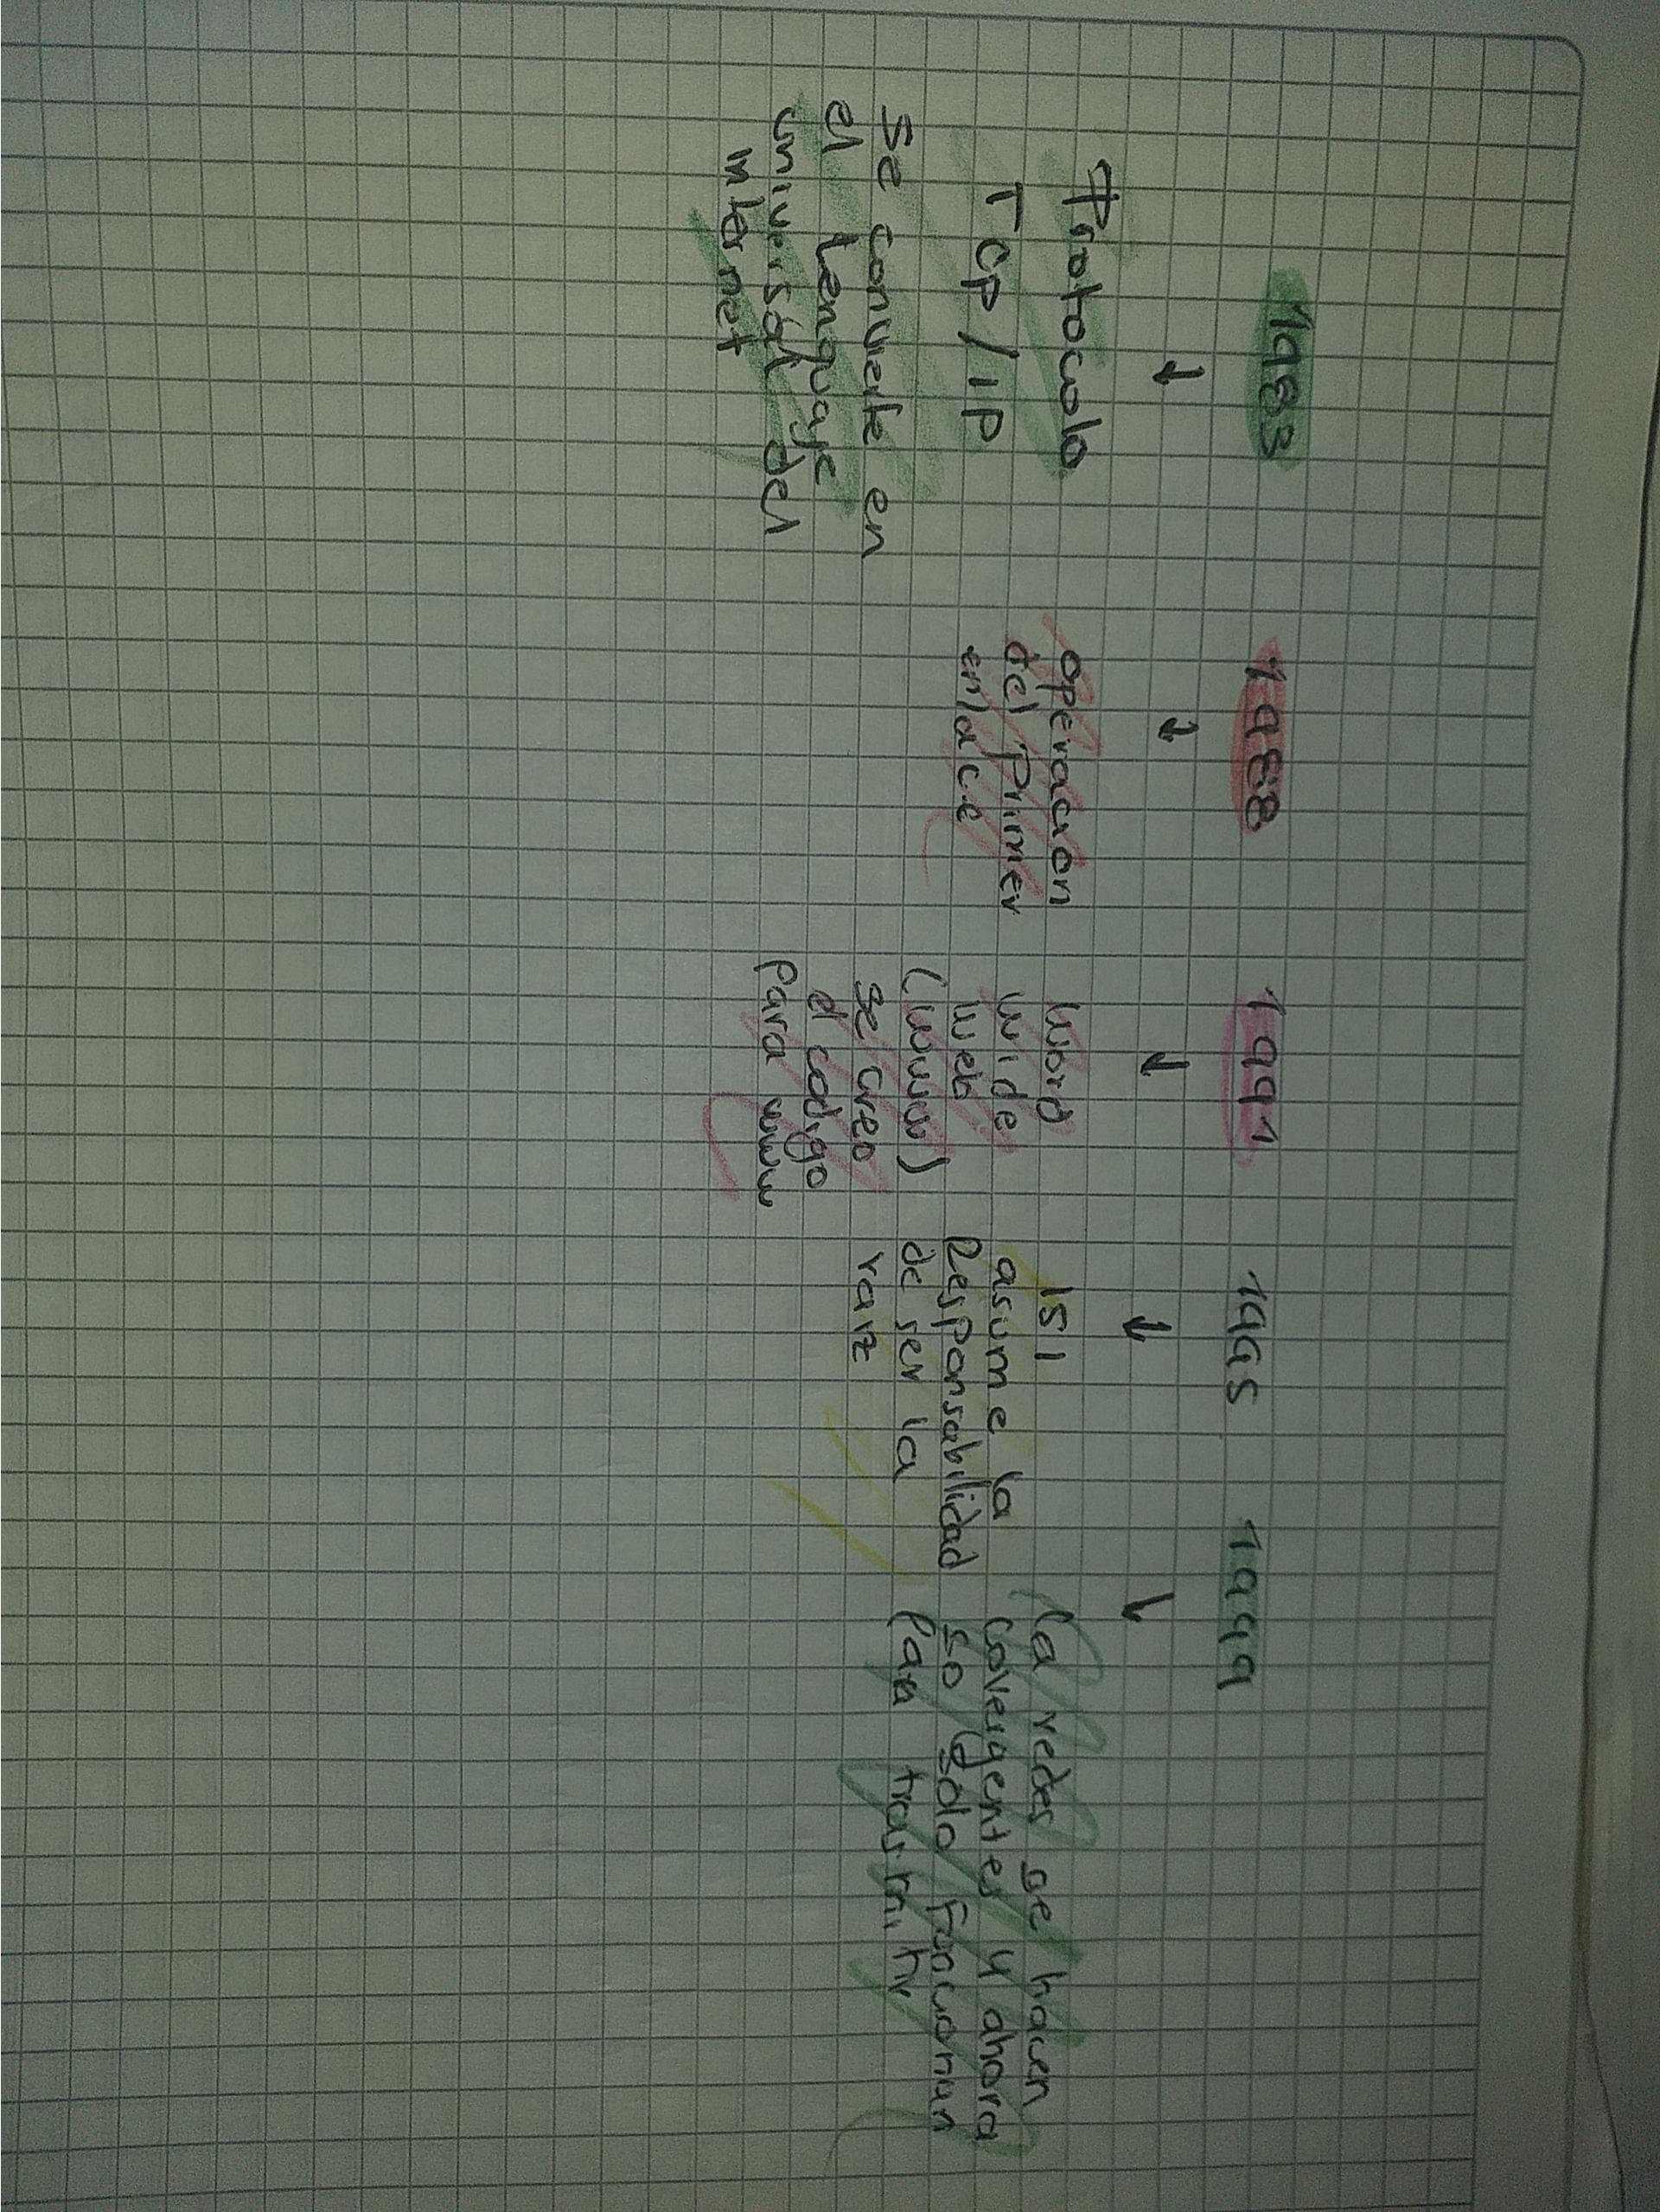 1983
↓
Protocolo
TCP/IP
Se convierte en
el lenguaje
universal del
internet
1988
↓
operacion
del Primer
enlace
1991
↓
Word
wide
web
(www)
se creo
el codigo
para www
1995
↓
ISI
asume la
Responsabilidad
de ser la
raiz
1999
↓
La redes se hacen
covergentes y ahora
so solo funcionan
Para trasmitir